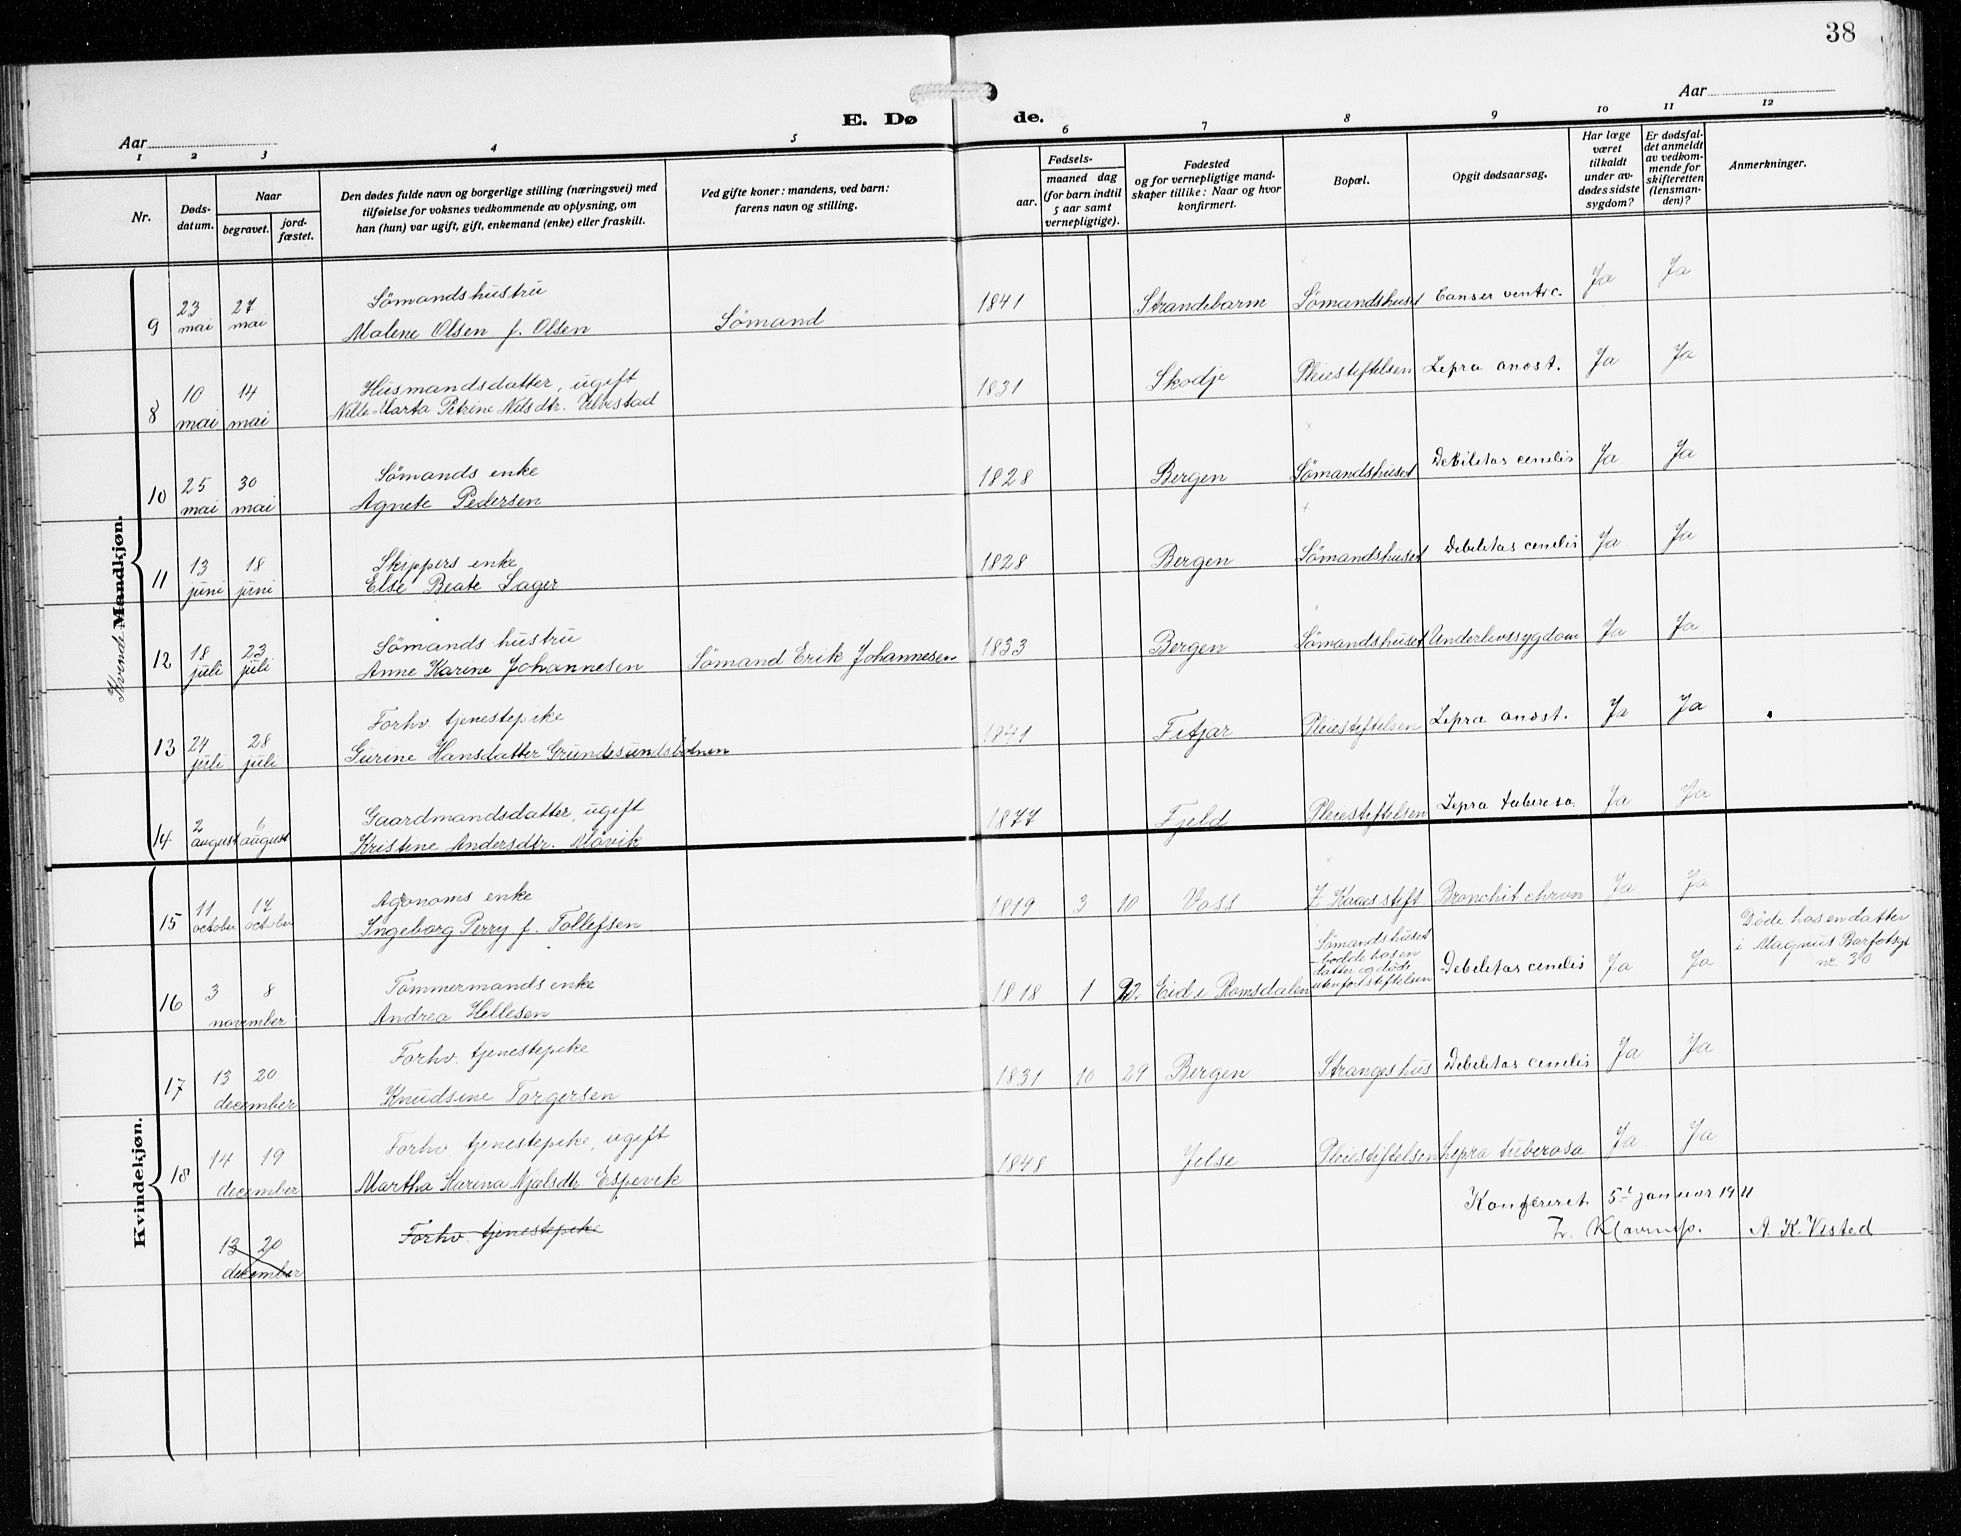 38
E. Døde.
Aar
Aar
1 2 3 4 5 6 7 8 9 10 11 12
Nr.
Døds-
datum.
Naar
begravet.
jord-
fæstet.
Den dødes fulde navn og borgerlige stilling (næringsvei) med
tilføielse for voksnes vedkommende av oplysning, om
han (hun) var ugift, gift, enkemand (enke) eller fraskilt.
Ved gifte koner: mandens, ved barn:
farens navn og stilling.
Fødsels-
aar.
maaned dag
(for barn indtil
5 aar samt
vernepligtige).
Fødested
og for vernepligtige mand-
skaper tillike: Naar og hvor
konfirmert.
Bopæl.
Opgit dødsaarsag.
Har læge
været
tilkaldt
under av-
dødes sidste
sygdom?
Er dødsfal-
det anmeldt
av vedkom-
mende for
skifteretten
(lensman-
den)?
Anmerkninger.
Kvinde Mandkjøn.
9 23 mai 27 mai Sömandshustru
Malene Olsen f. Olsen Sömand 1841 Strandebarm Sömandshuset Canser ventric. Ja Ja
8 10 mai 14 mai Husmandsdatter, ugift
Nille Marta Petrine Nilsdtr. Ulvestad 1831 Skodje Pleiestiftelsen Lepra anæst. Ja Ja
10 25 mai 30 mai Sömands enke
Agnete Pedersen 1828 Bergen Sömandshuset Debilitas cenilis Ja Ja
11 13 juni 18 juni Skippers enke
Else Beate Lager 1828 Bergen Sömandshuset Debilitas cenilis Ja Ja
12 18 juli 23 juli Sömands hustru
Anne Karine Johannesen Sömand Erik Johannesen 1833 Bergen Sömandshuset Underlivssygdom Ja Ja
13 24 juli 28 juli Forhv tjenestepike
Gurine Hansdatter Grundesundsbotnen 1841 Fitjar Pleiestiftelsen Lepra anæst. Ja Ja
14. 2 august 6 august Gaardmandsdatter, ugift
Kristine Andersdtr. Måvik 1877 Fjeld Pleiestiftelsen Lepra tuberosa Ja Ja
Kvindekjøn.
15 11 october 17 october Agronoms enke
Ingeborg Perry f. Tollefsen 1819 3 10 Voss Z. Kaaes stift Bronchit chron Ja Ja
16 3 8 november Tömmermands enke
Andrea Hellesen 1818 1 22 Eid i Romsdalen Sömandshuset
- bodde hos en
datter og døde
utenfor stiftelsen Debilitas cenilis Ja Ja Døde hos en datter
i Magnus Barfotsgt
nr. 30
17 13 20 december Forhv. tjenestepike
Knudsine Torgersen 1831 10 29 Bergen Strangeshus Debilitas cenilis Ja Ja
18 14 19 december Forhv. tjenestepike, ugift
Martha Karina Njælsdtr Espevik 1848 Jelse Pleiestiftelsen Lepra tuberosa Ja Ja
Konfereret 5t januar 1911
A. K. Visted
13 20 december Forhv. tjenestepike